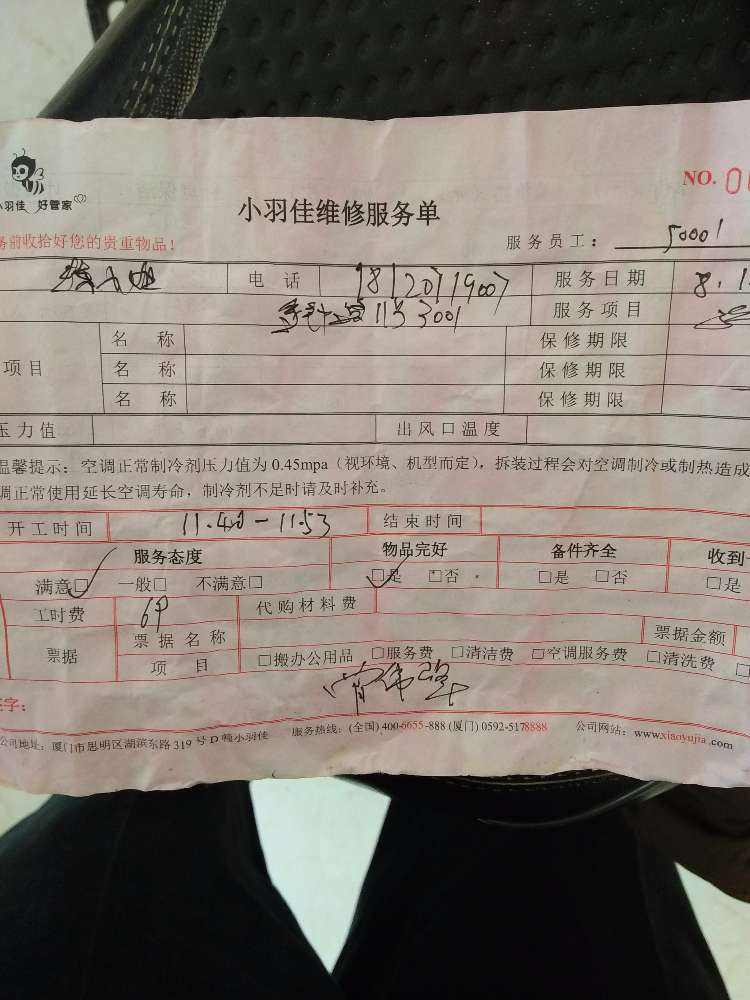 NO. 0
小羽佳 好管家
小羽佳维修服务单
务前收拾好您的贵重物品！
服务员工： 50001
电 话 18120119007 服务日期 8.1
113 3001 服务项目
名 称 保修期限
项目 名 称 保修期限
名 称 保修期限
压力值 出风口温度
温馨提示：空调正常制冷剂压力值为 0.45mpa（视环境、机型而定），拆装过程会对空调制冷或制热造成
调正常使用延长空调寿命，制冷剂不足时请及时补充。
开工时间 11.40-11.53 结束时间
服务态度 物品完好 备件齐全 收到
满意□ 一般□ 不满意□ □是 □否 □是 □否 □是
工时费 代购材料费
票据 票据名称 票据金额
项 目 □搬办公用品 □服务费 □清洁费 □空调服务费 □清洗费
字：
公司地址：厦门市思明区湖滨东路 319 号 D 幢小羽佳 服务热线：(全国) 400-6655-888 (厦门) 0592-5178888 公司网站：www.xiaoyujia.com